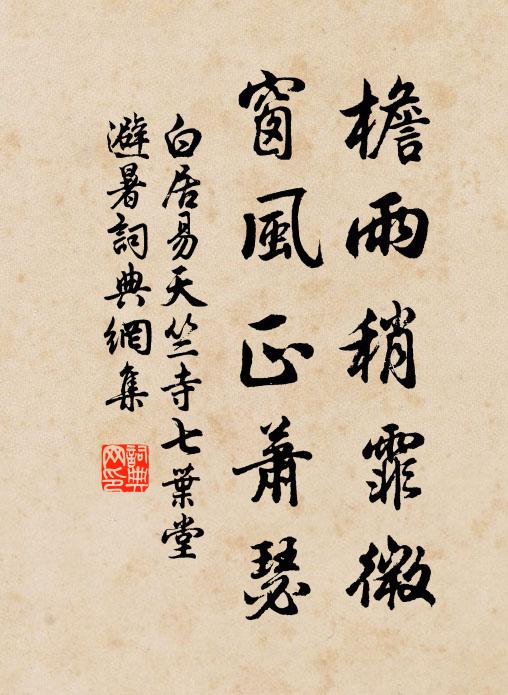 檐雨稍霏微
窗風正蕭瑟
白居易天竺寺七葉堂
避暑詞典網集
詞典
网印